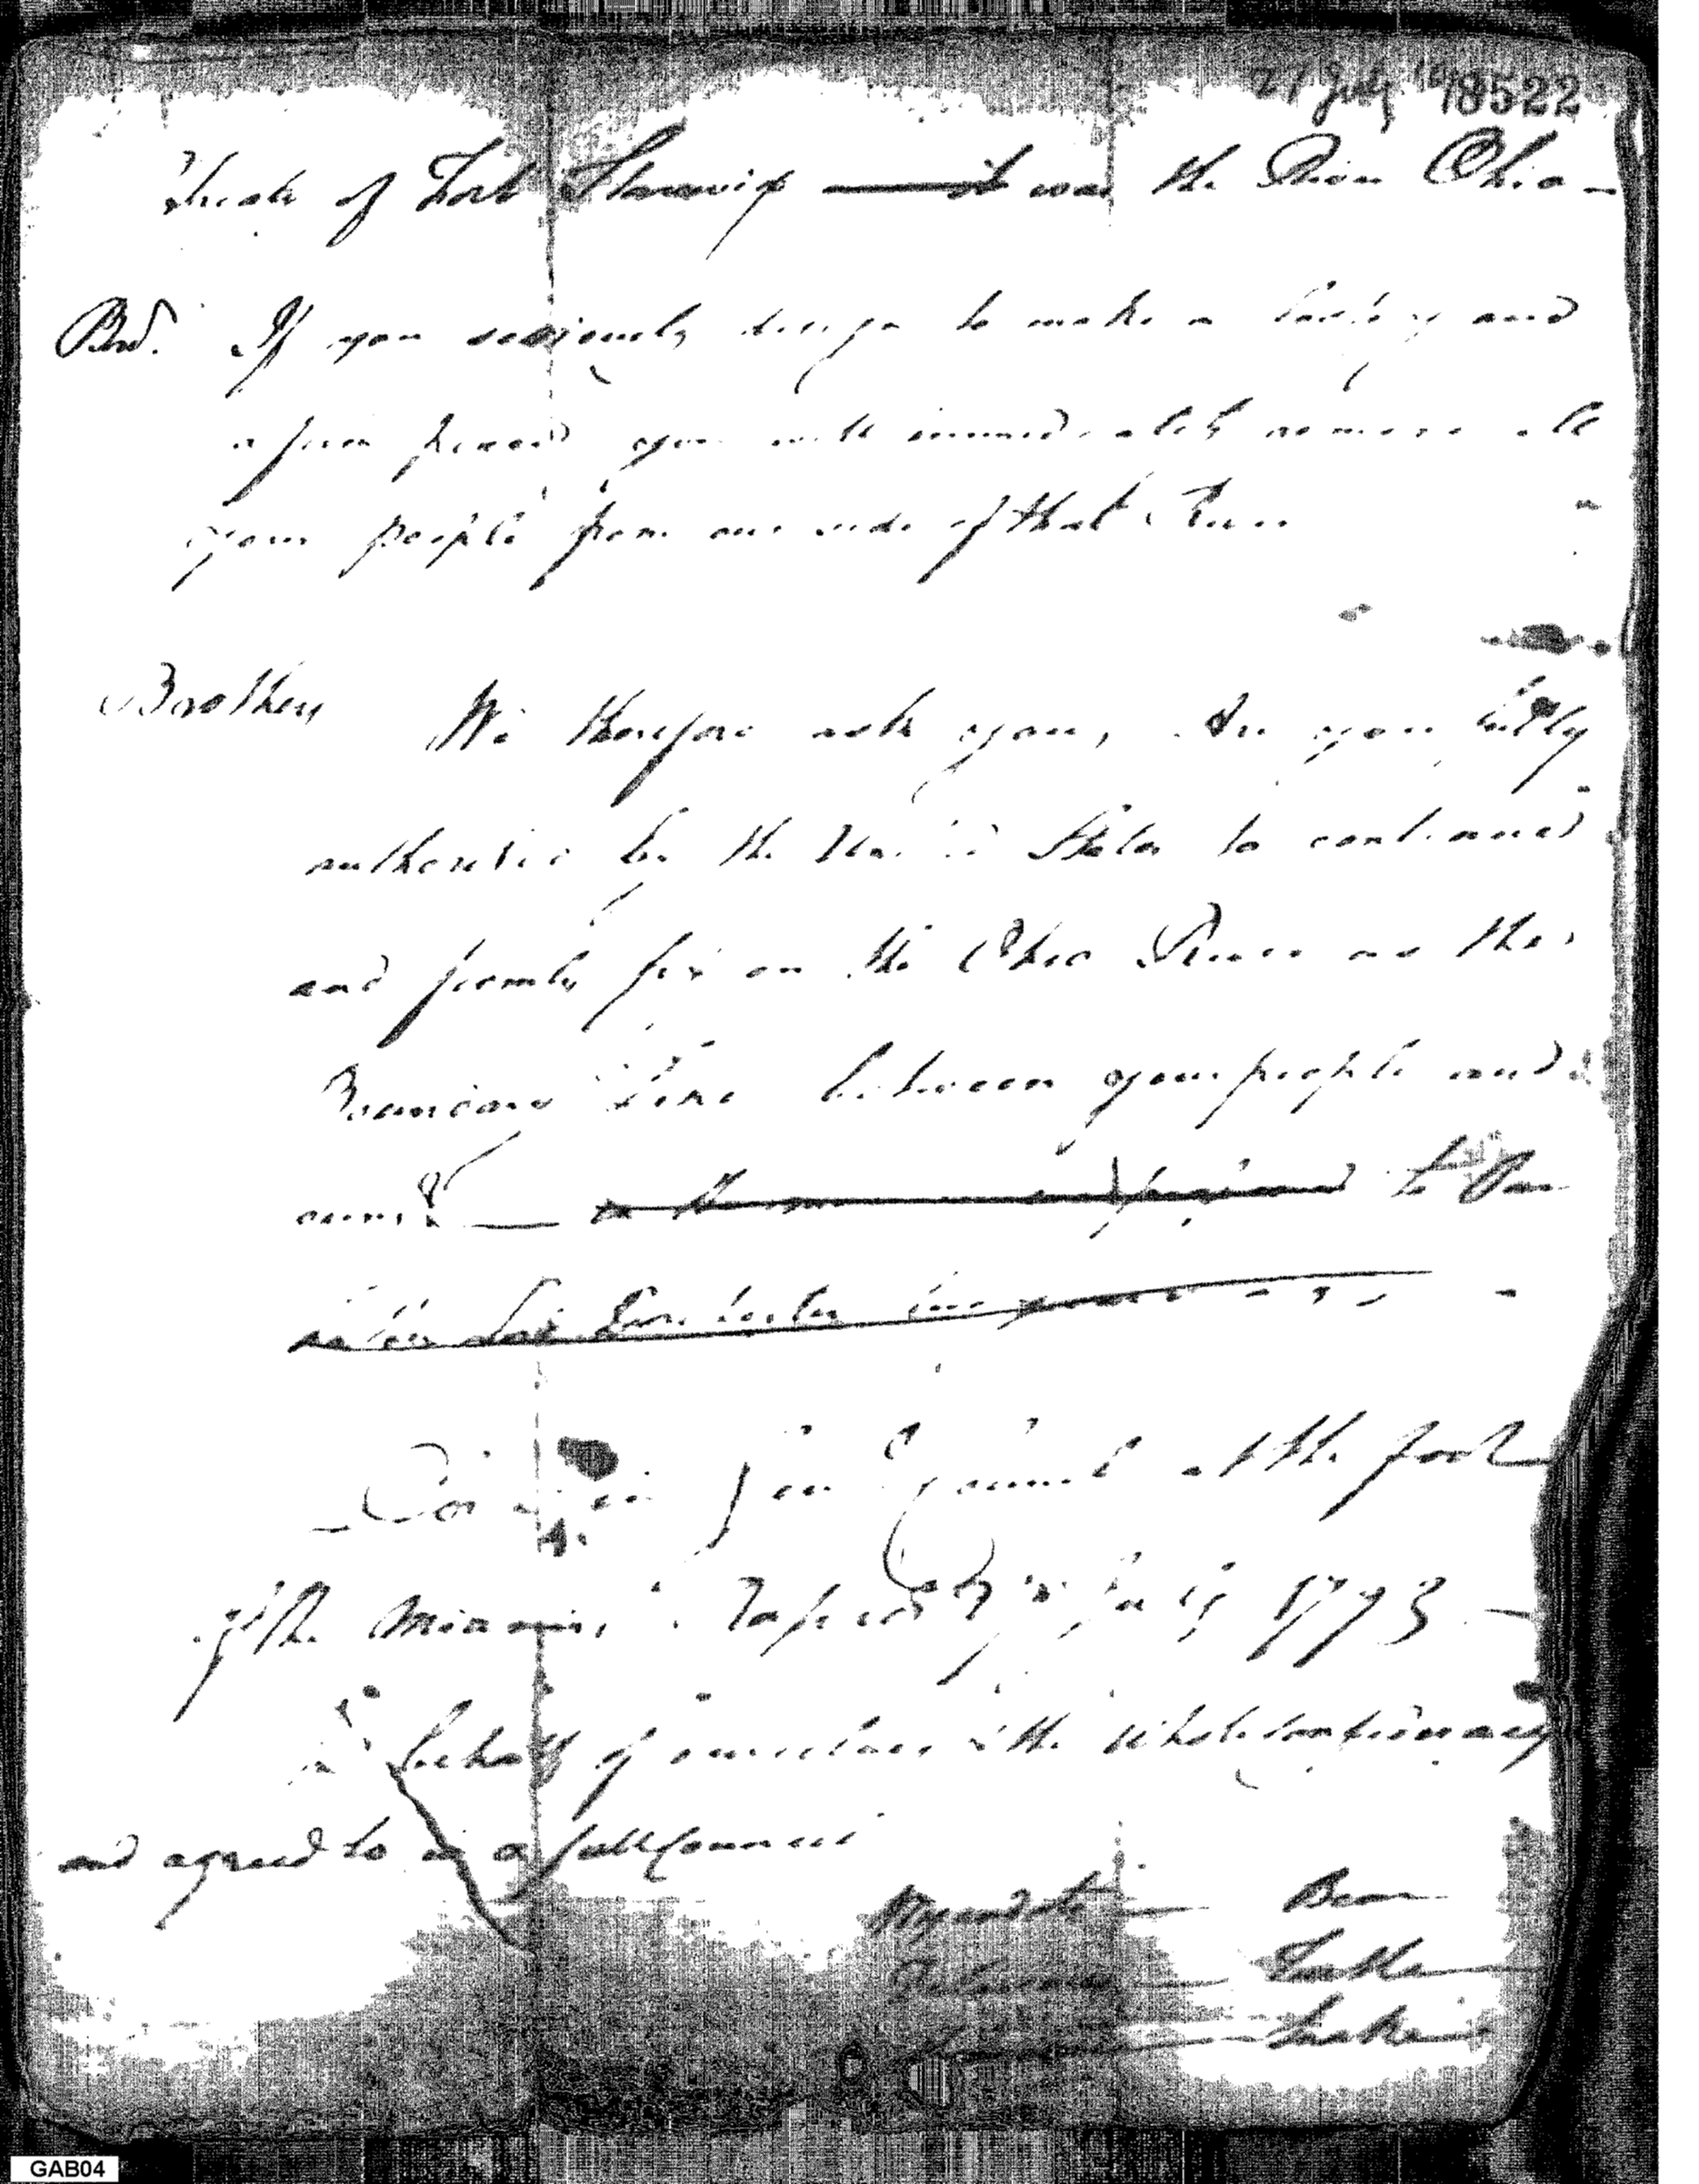 27 July 18522
Treate of Fort Stanwix it was the River Ohio —
Brs. If you seriously design to make a lasting and
a firm peace you will immediately remove all
your people from our side of that River
Brothers We therefore ask you, Are you fully
authorised by the United States to continue
and firmly fix on the Ohio River as the
Boundary Line between your people and
ours? — to the
Done in Council at the foot
of the Miamis Rapids 27th July 1793 —
in behalf of ourselves & the whole confederacy
and agreed to in a full Council
Wyandots — Bear
Delawares — Turtle
Snake
GAB04